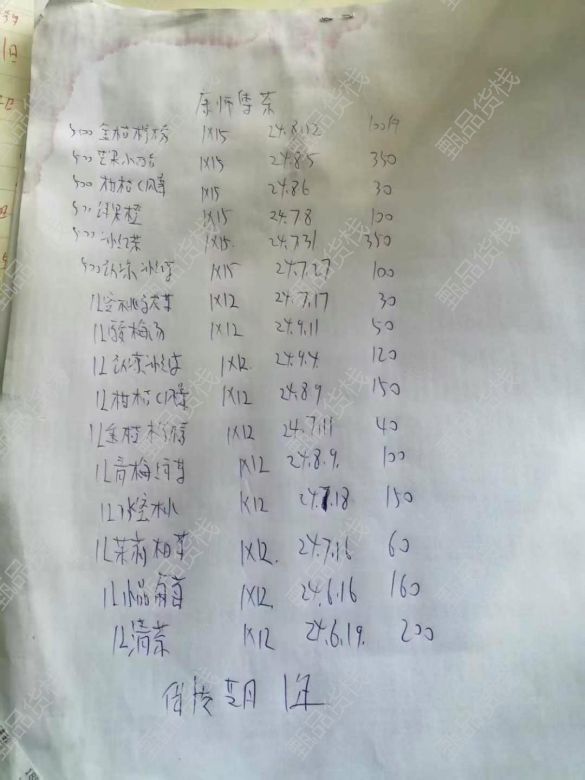 康师傅茶
500 金桔柠檬 1X15 24.8.12 100件
500 芒果小酪 1X15 24.8.5 350
500 柑桔C风暴 1X15 24.8.6 30
500 鲜果橙 1X15 24.7.8 100
500 冰红茶 1X15 24.7.31 350
500 劲凉冰红茶 1X15 24.7.27 100
1L 1X12 24.7.17 30
1L酸梅汤 1X12 24.9.11 50
1L劲凉冰红茶 1X12 24.9.4 120
1L柑桔C风暴 1X12 24.8.9 150
1L金桔柠檬 1X12 24.7.11 40
1L青梅绿茶 1X12 24.8.9. 100
1L水蜜桃 1X12 24.7.18 150
1L茉莉柚茶 1X12. 24.7.16 60
1L水晶葡萄 1X12. 24.6.16 160
1L清茶 1X12 24.6.19. 200
保质期 1年
甄品货栈